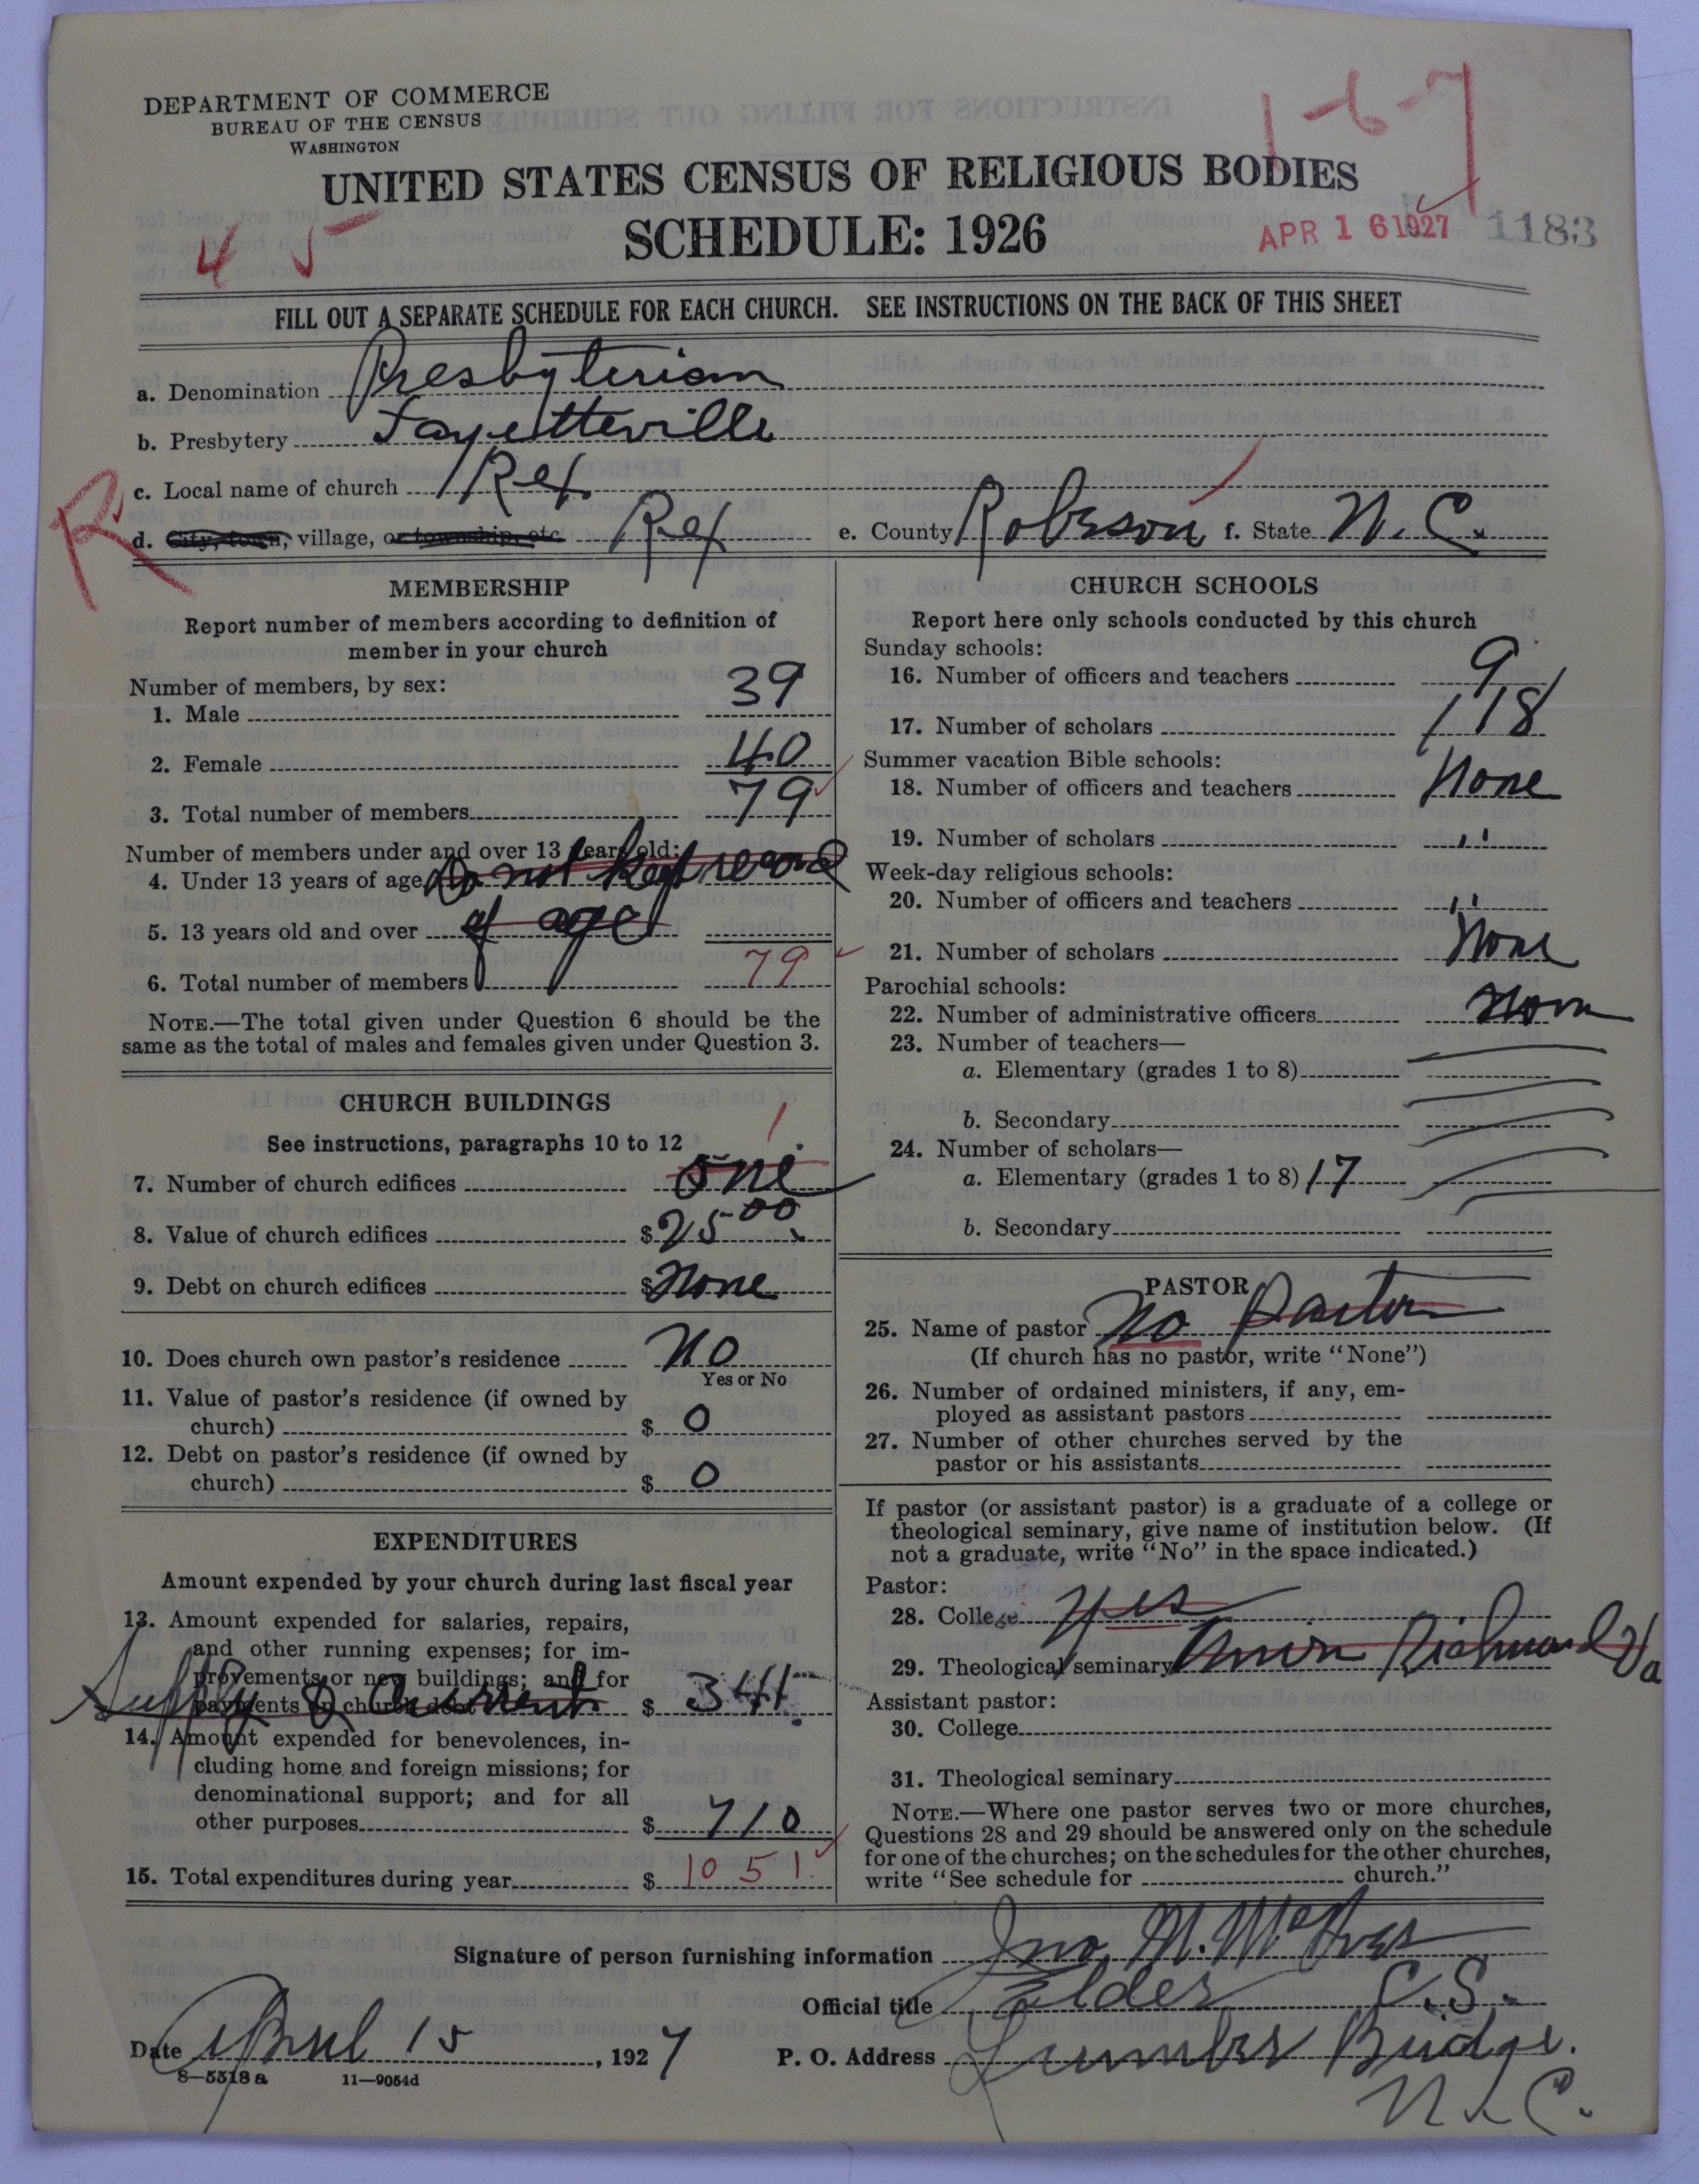 DEPARTMENT OF COMMERCE
BUREAU OF THE CENSUS
WASHINGTON
1-6-7
UNITED STATES CENSUS OF RELIGIOUS BODIES
SCHEDULE: 1926
45
APR 16 1927 1183
FILL OUT A SEPARATE SCHEDULE FOR EACH CHURCH. SEE INSTRUCTIONS ON THE BACK OF THIS SHEET
a. Denomination Presbyterian
b. Presbytery Fayetteville
c. Local name of church Rex
R
d. City, town, village, or township, etc. Rex e. County Robeson f. State N. C.
MEMBERSHIP
Report number of members according to definition of
member in your church
Number of members, by sex:
1. Male 39
2. Female 40
3. Total number of members 79
Number of members under and over 13 years old:
4. Under 13 years of age Do not keep record
5. 13 years old and over of age
6. Total number of members 79
NOTE.—The total given under Question 6 should be the
same as the total of males and females given under Question 3.
CHURCH BUILDINGS
See instructions, paragraphs 10 to 12
1
7. Number of church edifices one
8. Value of church edifices $2500
9. Debt on church edifices $None
10. Does church own pastor's residence No
Yes or No
11. Value of pastor's residence (if owned by
church) $ 0
12. Debt on pastor's residence (if owned by
church) $ 0
EXPENDITURES
Amount expended by your church during last fiscal year
13. Amount expended for salaries, repairs,
and other running expenses; for im-
provements or new buildings; and for
payments on church debt $ 341
Supply & Current
14. Amount expended for benevolences, in-
cluding home and foreign missions; for
denominational support; and for all
other purposes $ 710
15. Total expenditures during year $ 1051
CHURCH SCHOOLS
Report here only schools conducted by this church
Sunday schools:
16. Number of officers and teachers 9
17. Number of scholars 118
Summer vacation Bible schools:
18. Number of officers and teachers None
19. Number of scholars "
Week-day religious schools:
20. Number of officers and teachers "
21. Number of scholars None
Parochial schools:
22. Number of administrative officers None
23. Number of teachers—
a. Elementary (grades 1 to 8)
b. Secondary
24. Number of scholars—
a. Elementary (grades 1 to 8) 17
b. Secondary
PASTOR
25. Name of pastor No Pastor
(If church has no pastor, write "None")
26. Number of ordained ministers, if any, em-
ployed as assistant pastors
27. Number of other churches served by the
pastor or his assistants
If pastor (or assistant pastor) is a graduate of a college or
theological seminary, give name of institution below. (If
not a graduate, write "No" in the space indicated.)
Pastor:
28. College yes
29. Theological seminary Union Richmond Va
Assistant pastor:
30. College
31. Theological seminary
NOTE.—Where one pastor serves two or more churches,
Questions 28 and 29 should be answered only on the schedule
for one of the churches; on the schedules for the other churches,
write "See schedule for church."
Signature of person furnishing information Jno. M. McIver
Official title Elder C.S.
Date April 15, 1927 P. O. Address Lumber Bridge.
N. C.
8—5518 a 11—9054d